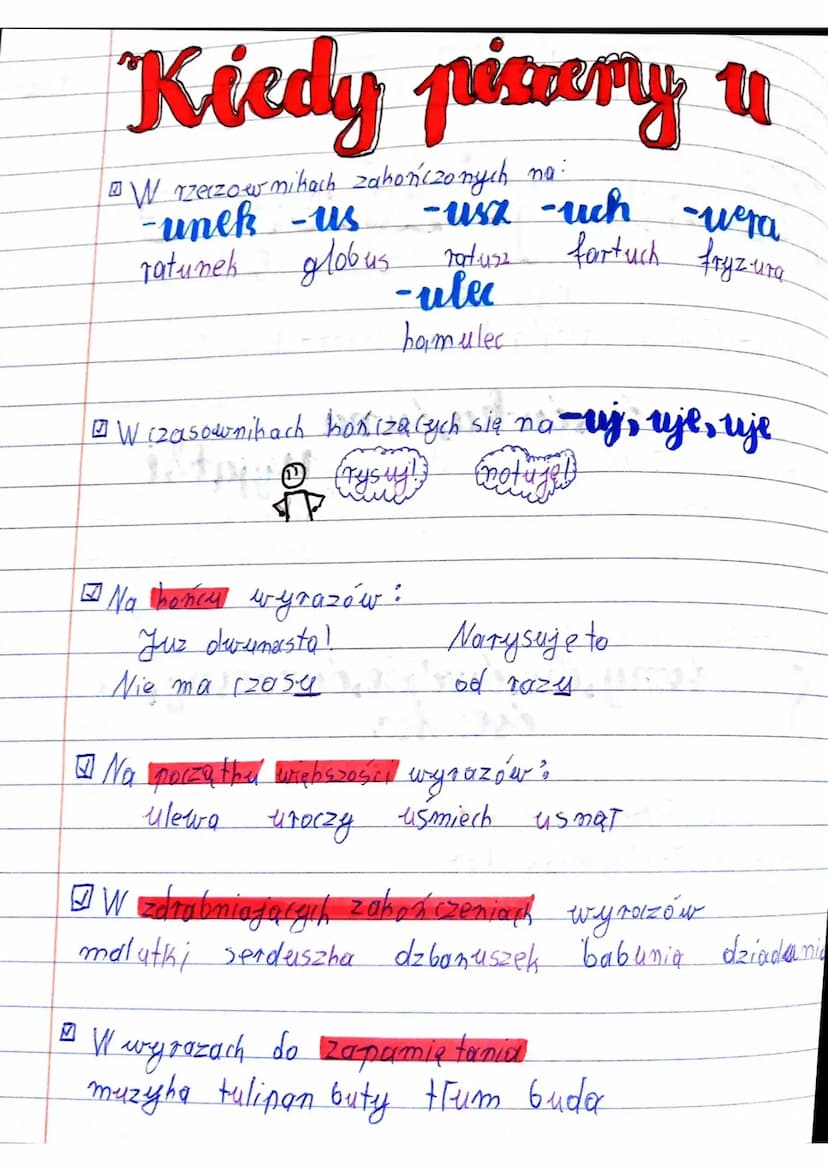 Kiedy piszemy u
W rzeczownikach zakończonych na:
-unek -us -usz -uch -uera
ratunek globus ratusz fartuch fryzura
-ulec
hamulec
W czasownikach kończących się na -uj, uje, uje
rysuj! notuję!
Na końcu wyrazów:
Już dwunasta! Narysuję to
Nie ma czasu od razu
Na początku większości wyrazów:
ulewa uroczy uśmiech usnąć
W zdrabniających zakończeniach wyrazów
malutki serduszka dzbanuszek babunia dziadunio
W wyrazach do zapamiętania
muzyka tulipan buty tłum buda